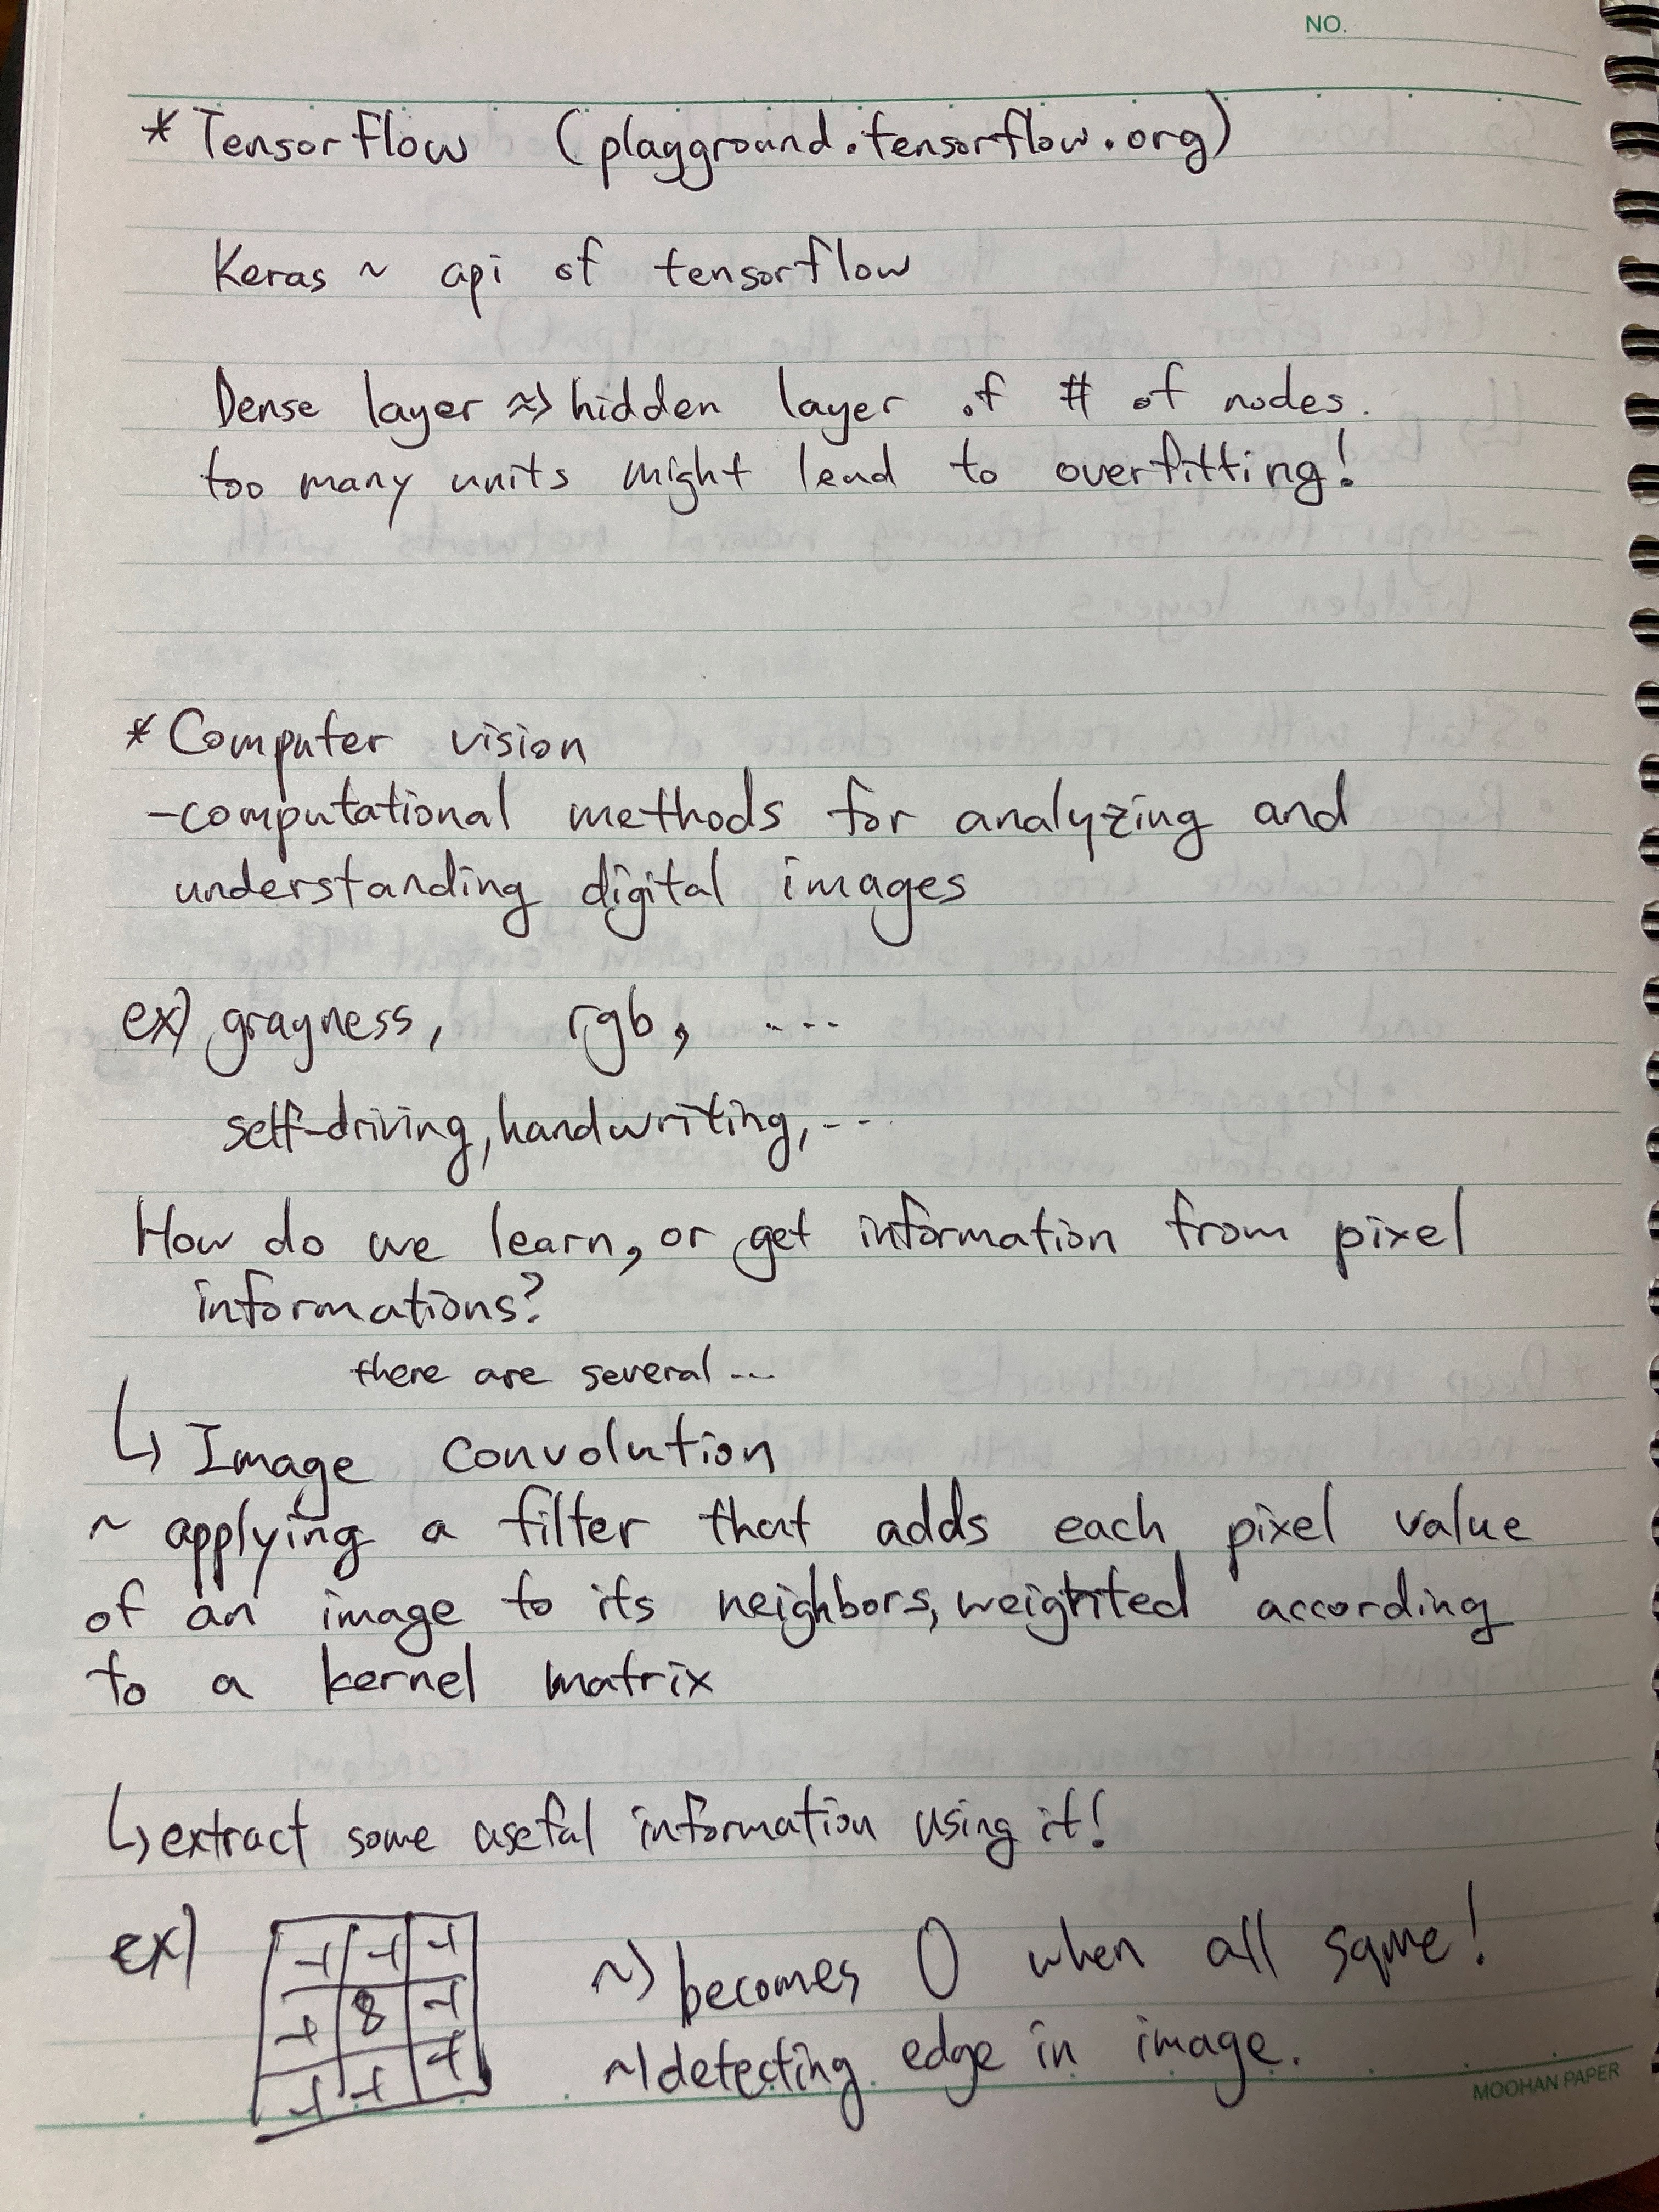 NO.
* Tensorflow (playground.tensorflow.org)
Keras ~ api of tensorflow
Dense layer ≈> hidden layer of # of nodes.
too many units might lead to overfitting!
* Computer vision
-computational methods for analyzing and
understanding digital images
ex) grayness, rgb, ....
self-driving, handwriting, ...
How do we learn, or get information from pixel
informations?
there are several ...
↳ Image convolution
~ applying a filter that adds each pixel value
of an image to its neighbors, weighted according
to a kernel matrix
↳ extract some useful information using it!
ex) -1 -1 -1 ~> becomes 0 when all same!
-1 8 -1
-1 -1 -1 ~> detecting edge in image.
MOOHAN PAPER